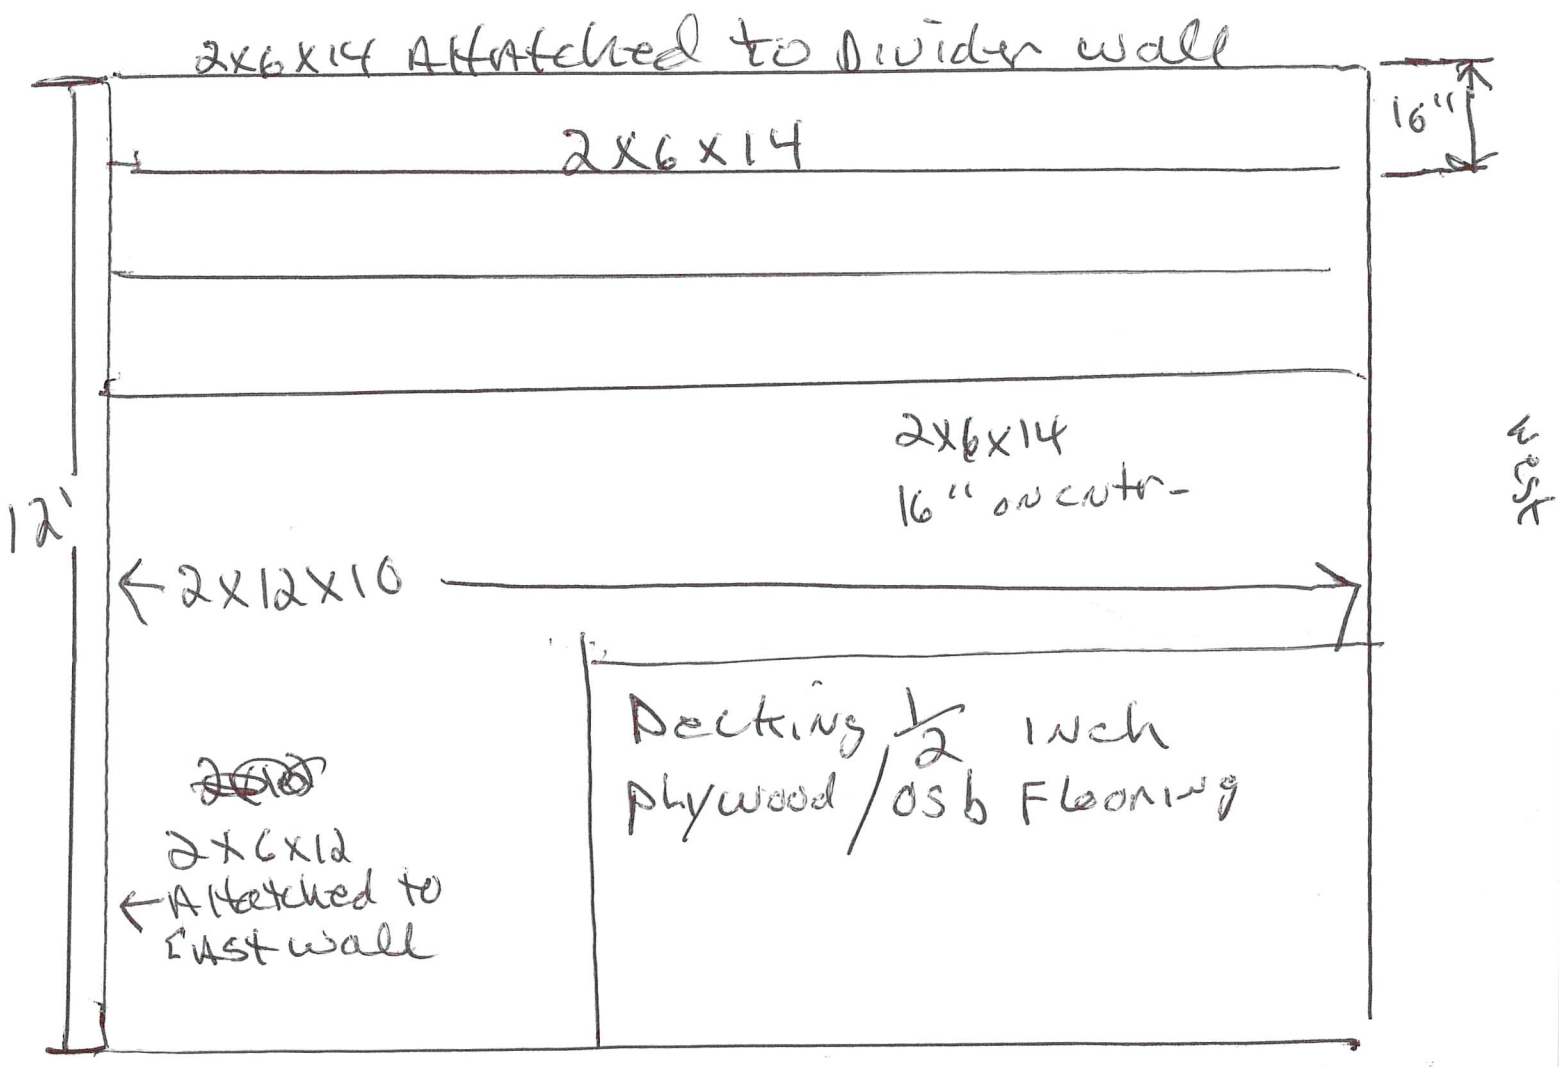 2x6x14 Attatched to Divider wall
16"
2x6x14
2x6x14
16" on cntr-
west
12'
2x12x10
Decking 1/2 inch
plywood/osb Flooring
2x6x12
Attatched to
East wall